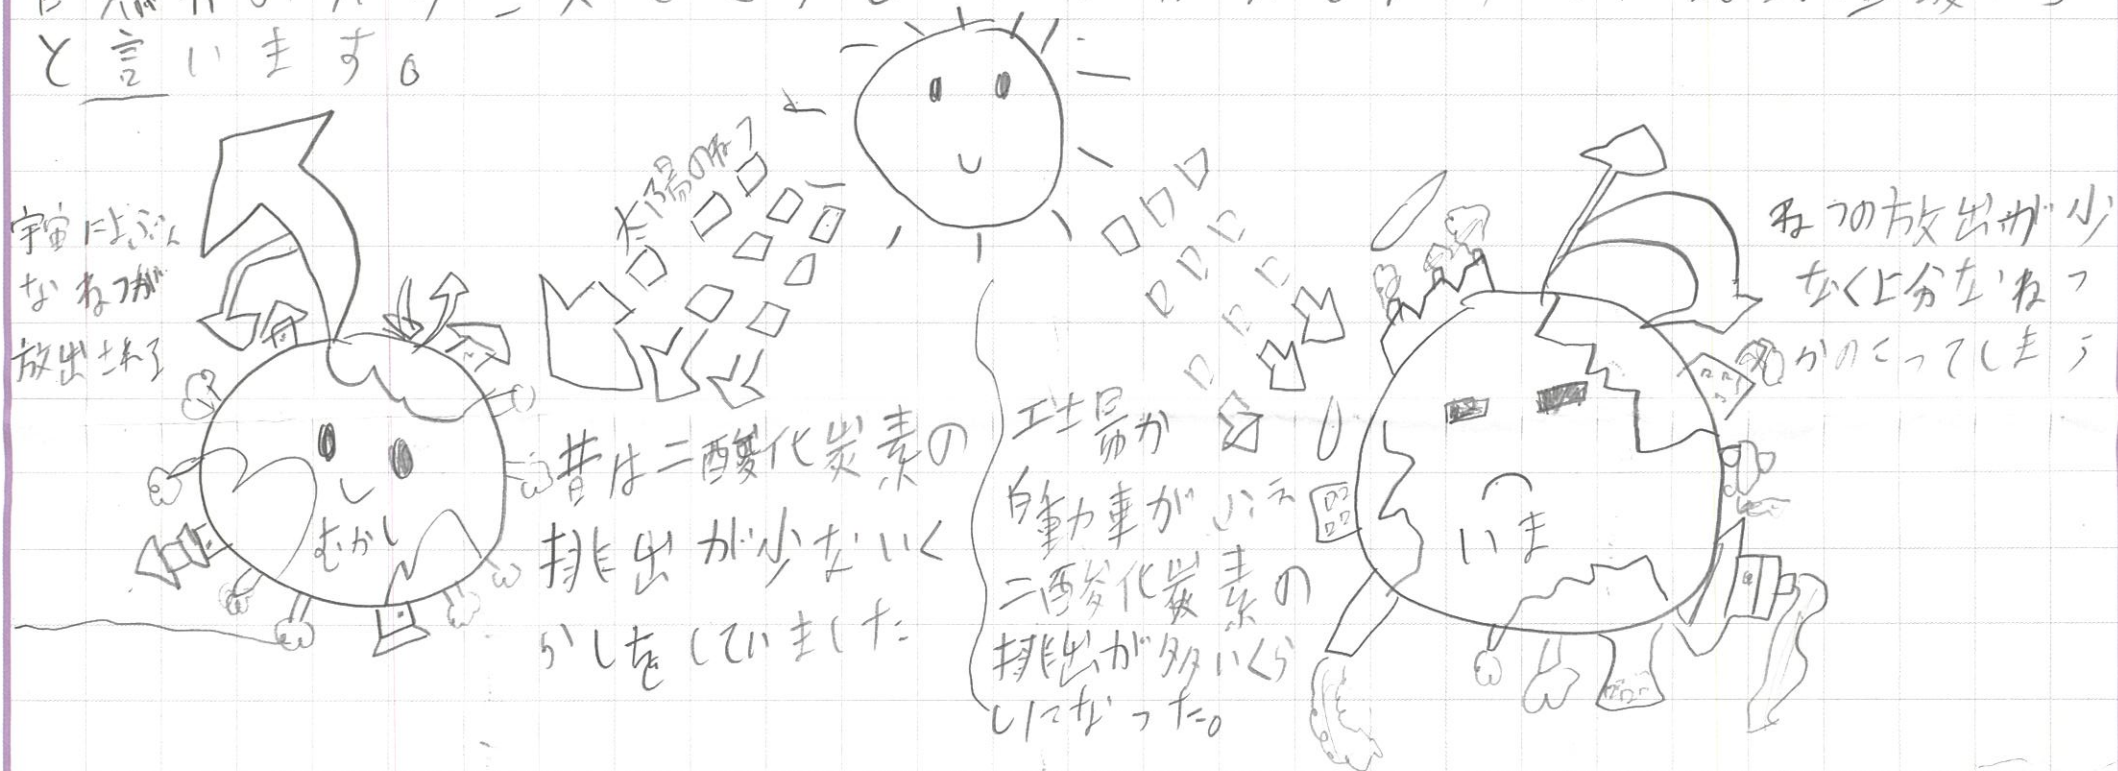 と言います。
太陽のねつ
宇宙によぶん
なねつが
放出される
むかし
昔は二酸化炭素の
排出が少ないく
らしをしていました
工場か
自動車がふえ
二酸化炭素の
排出が多いくら
しになった。
いま
ねつの放出が少
なくよ分なねつ
かのこってしまう